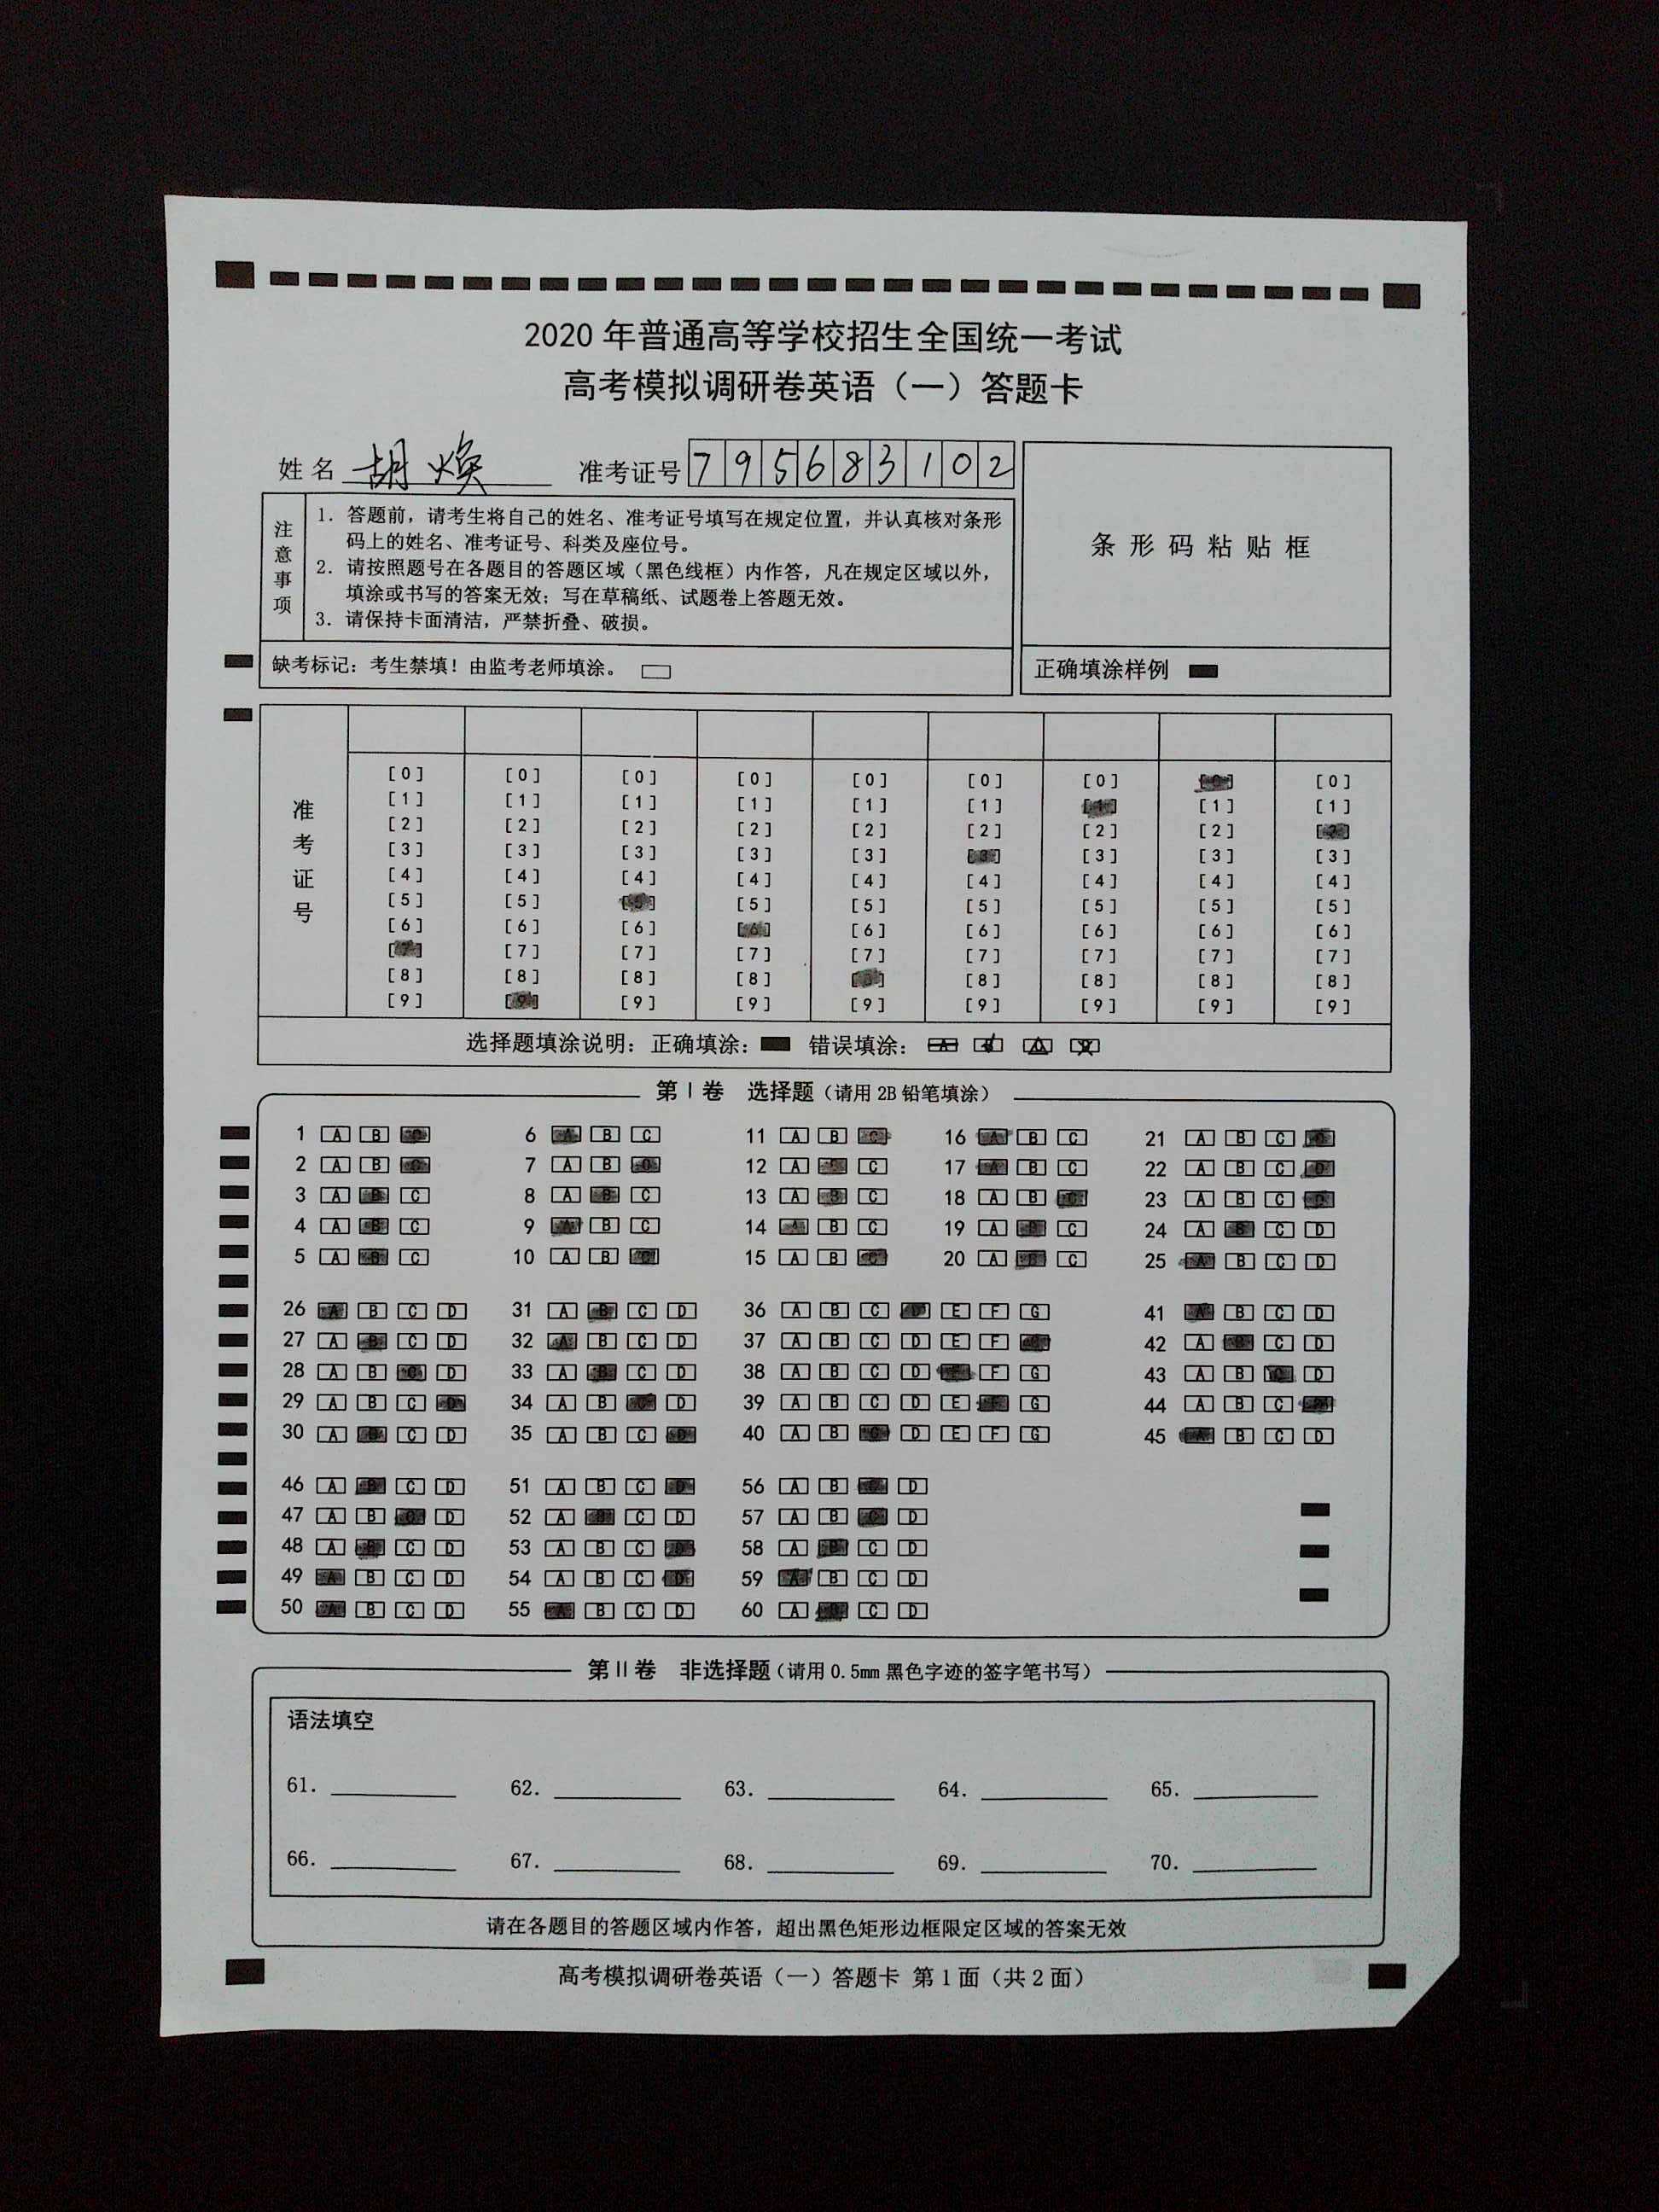 2020年普通高等学校招生全国统一考试
高考模拟调研卷英语（一）答题卡
姓名 胡焕 准考证号 795683102
注意事项
1. 答题前，请考生将自己的姓名、准考证号填写在规定位置，并认真核对条形
码上的姓名、准考证号、科类及座位号。
2. 请按照题号在各题目的答题区域（黑色线框）内作答，凡在规定区域以外，
填涂或书写的答案无效；写在草稿纸、试题卷上答题无效。
3. 请保持卡面清洁，严禁折叠、破损。
条形码粘贴框
缺考标记：考生禁填！由监考老师填涂。
正确填涂样例
准考证号
[0] [0] [0] [0] [0] [0] [0] [0] [0]
[1] [1] [1] [1] [1] [1] [1] [1] [1]
[2] [2] [2] [2] [2] [2] [2] [2] [2]
[3] [3] [3] [3] [3] [3] [3] [3] [3]
[4] [4] [4] [4] [4] [4] [4] [4] [4]
[5] [5] [5] [5] [5] [5] [5] [5] [5]
[6] [6] [6] [6] [6] [6] [6] [6] [6]
[7] [7] [7] [7] [7] [7] [7] [7] [7]
[8] [8] [8] [8] [8] [8] [8] [8] [8]
[9] [9] [9] [9] [9] [9] [9] [9] [9]
选择题填涂说明：正确填涂： 错误填涂： A B C D
第Ⅰ卷 选择题（请用2B铅笔填涂）
1 A B C 6 A B C 11 A B C 16 A B C 21 A B C D
2 A B C 7 A B C 12 A B C 17 A B C 22 A B C D
3 A B C 8 A B C 13 A B C 18 A B C 23 A B C D
4 A B C 9 A B C 14 A B C 19 A B C 24 A B C D
5 A B C 10 A B C 15 A B C 20 A B C 25 A B C D
26 A B C D 31 A B C D 36 A B C D E F G 41 A B C D
27 A B C D 32 A B C D 37 A B C D E F G 42 A B C D
28 A B C D 33 A B C D 38 A B C D E F G 43 A B C D
29 A B C D 34 A B C D 39 A B C D E F G 44 A B C D
30 A B C D 35 A B C D 40 A B C D E F G 45 A B C D
46 A B C D 51 A B C D 56 A B C D
47 A B C D 52 A B C D 57 A B C D
48 A B C D 53 A B C D 58 A B C D
49 A B C D 54 A B C D 59 A B C D
50 A B C D 55 A B C D 60 A B C D
第Ⅱ卷 非选择题（请用0.5mm黑色字迹的签字笔书写）
语法填空
61. 62. 63. 64. 65.
66. 67. 68. 69. 70.
请在各题目的答题区域内作答，超出黑色矩形边框限定区域的答案无效
高考模拟调研卷英语（一）答题卡 第1面（共2面）